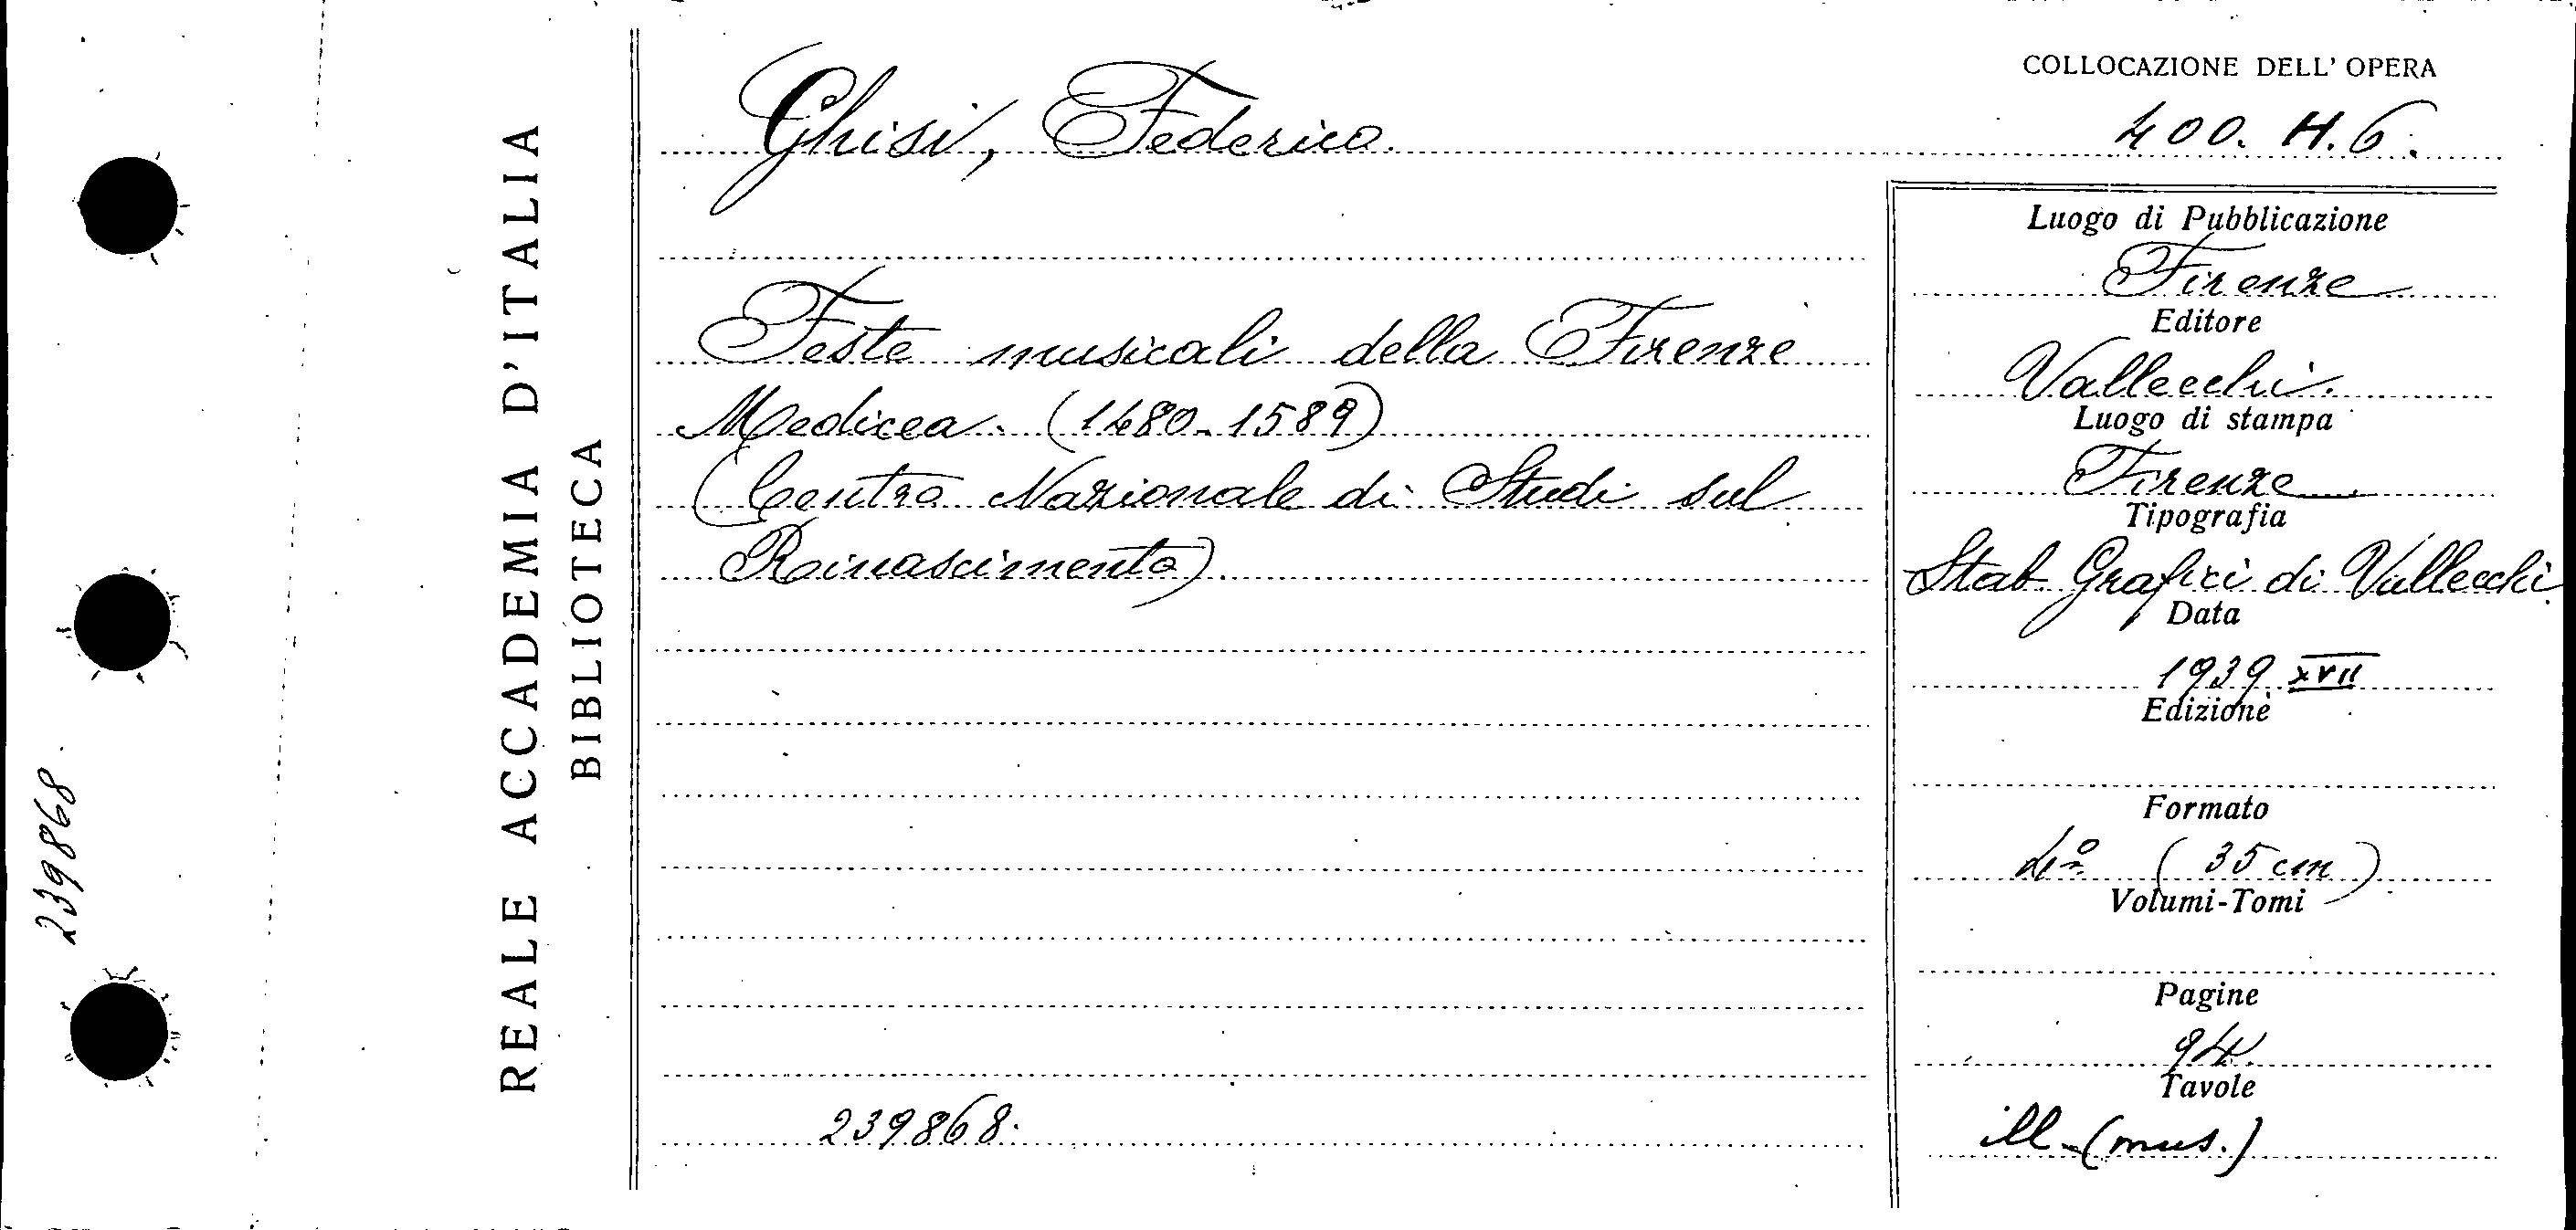 COLLOCAZIONE DELL' OPERA
Ghisi, Federico.
400. H. 6.
REALE ACCADEMIA D'ITALIA
BIBLIOTECA
Feste musicali della Firenze
Medicea. (1480-1589)
(Centro Nazionale di Studi sul
Rinascimento)
239868.
Luogo di Pubblicazione
Firenze
Editore
Vallecchi.
Luogo di stampa
Firenze
Tipografia
Stab. Grafici di Vallecchi
Data
1939 XVII
Edizione
Formato
4º (35 cm)
Volumi-Tomi
Pagine
94.
Tavole
ill. (mus.)
239868.